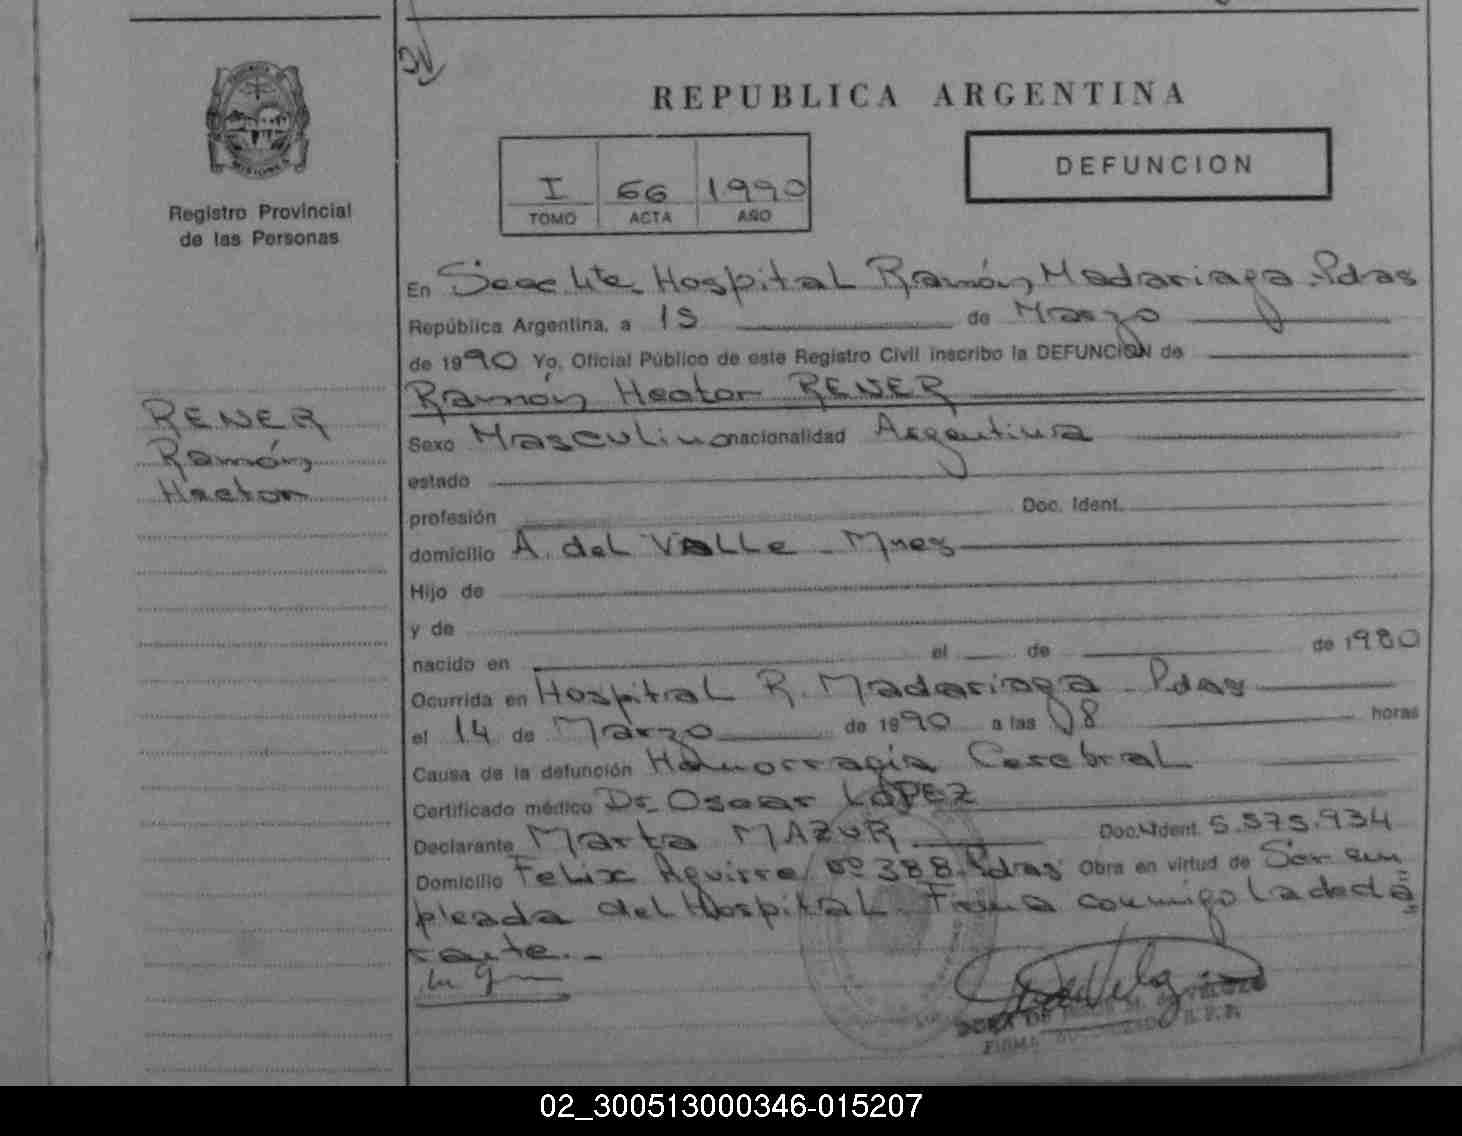 REPUBLICA ARGENTINA
DEFUNCION
I 66 1990
TOMO ACTA AÑO
MISIONES
Registro Provincial
de las Personas
En Secc 4te. Hospital Ramón Madariaga. Pdas
República Argentina, a 15 de Marzo
de 1990 Yo, Oficial Público de este Registro Civil inscribo la DEFUNCION de
Ramón Hector RENER
RENER
Ramón
Hector
Sexo Masculino nacionalidad Argentina
estado
profesión Doc. Ident.
domicilio A. del Valle - Mnes
Hijo de
y de
nacido en el de de 1980
Ocurrida en Hospital R. Madariaga - Pdas
el 14 de Marzo de 1990 a las 08 horas
Causa de la defunción Hemorragia Cerebral
Certificado médico Dr. Oscar LOPEZ
Declarante Marta MAZUR Doc. Ident. 5.575.934
Domicilio Felix Aguirre nº 388. Pdas Obra en virtud de Ser em
pleada del Hospital. Firma conmigo la decla
rante. -
DORA DE
FIRMA
02_300513000346-015207